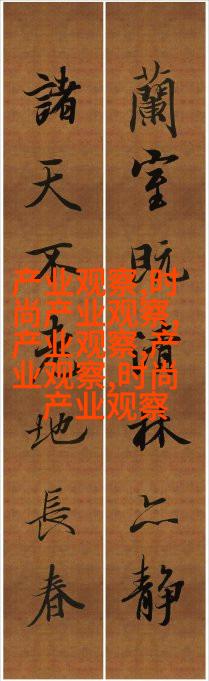 蘭室既清林亦靜
諸天不地長春
产业观察,时
尚产业观察,
产业观察,产
业观察,时尚
产业观察